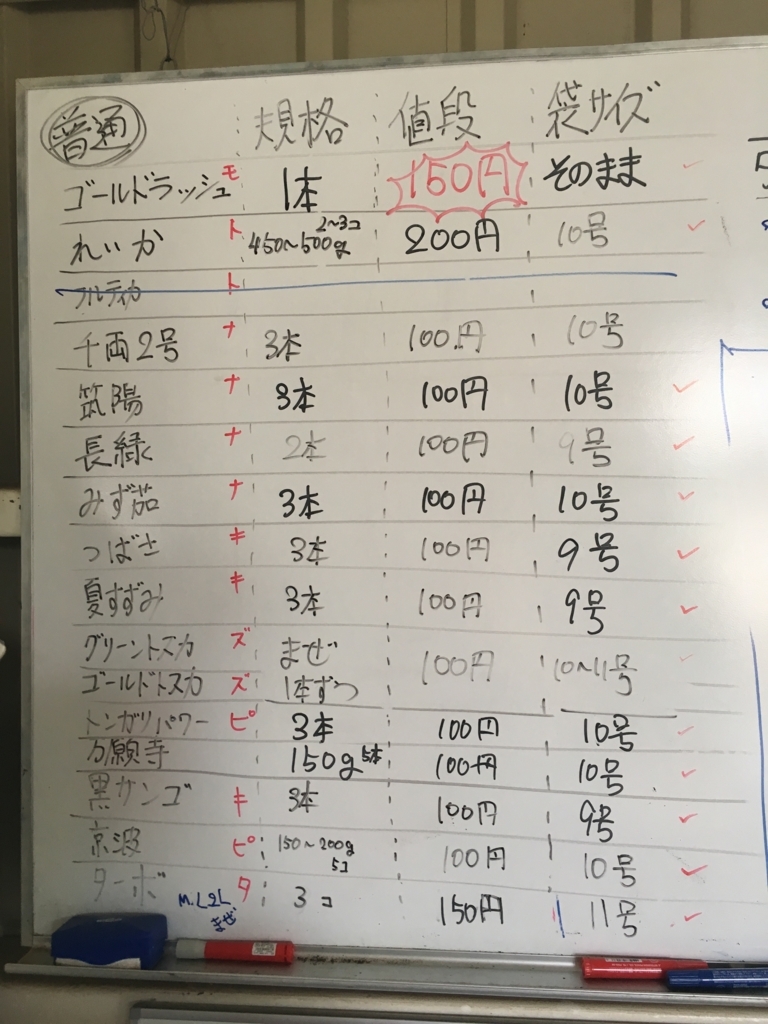 普通 規格 値段 袋サイズ
ゴールドラッシュ モ 1本 150円 そのまま
れいか ト 450~500g 2~3コ 200円 10号
フルティカ ト
千両2号 ナ 3本 100円 10号
筑陽 ナ 3本 100円 10号
長緑 ナ 2本 100円 9号
みず茄 ナ 3本 100円 10号
つばさ キ 3本 100円 9号
夏すずみ キ 3本 100円 9号
グリーントスカ ズ まぜ 100円 10~11号
ゴールドトスカ ズ 1本ずつ
トンガリパワー ピ 3本 100円 10号
万願寺 150g 5本 100円 10号
黒サンゴ キ 3本 100円 9号
京波 ピ 150~200g 5コ 100円 10号
ターボ M.L2L まぜ タ 3コ 150円 11号